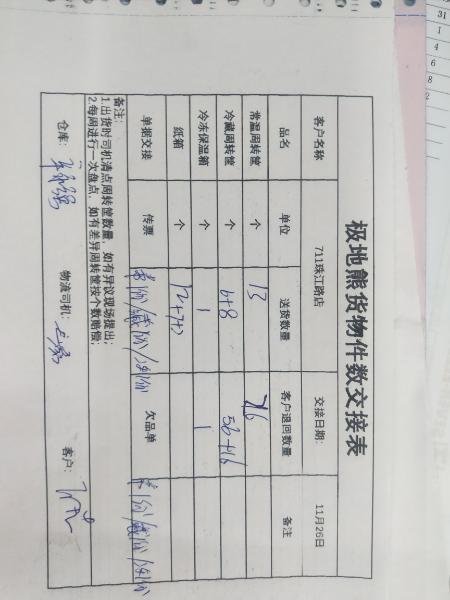 极地熊货物件数交接表
客户名称 711珠江路店 交接日期: 11月26日
品名 单位 送货数量 客户退回数量 备注
常温周转筐 个 13 76
冷藏周转筐 个 6+8 56+16
冷冻保温箱 个 1 1
纸箱 个 12+7+2
单据交接 传票 欠品单
备注:
1.出货时司机清点周转筐数量,如有异议现场提出;
2.每周进行一次盘点,如有差异周转筐按个数赔偿;
仓库: 物流司机: 客户: